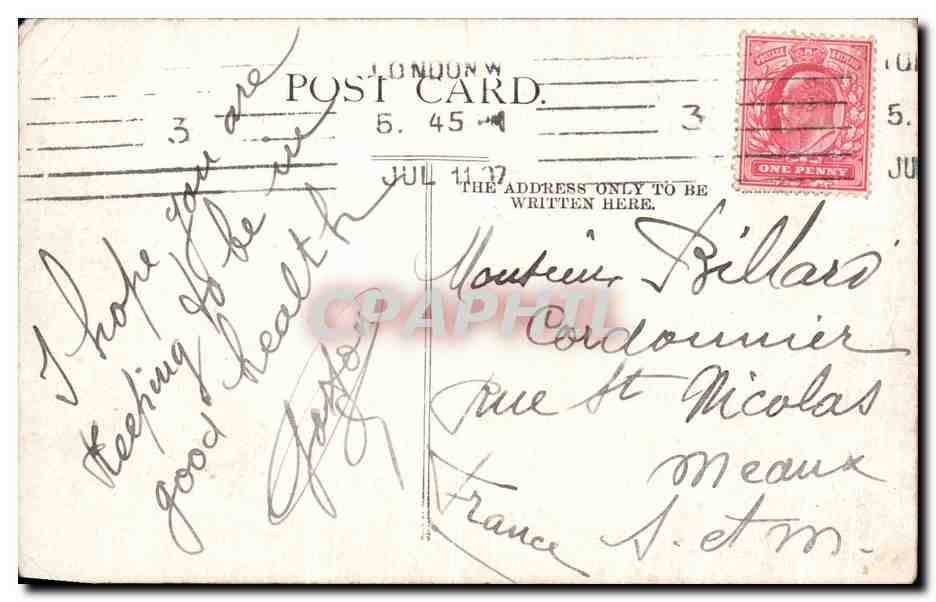 LONDON W
POST CARD.
3 5. 45 3 5.
JUL 11 07
THE ADDRESS ONLY TO BE
WRITTEN HERE.
ONE PENNY
I hope you are
Keeping to be in
good health
Gaston
Monsieur Billard
Cordonnier
Rue St Nicolas
Meaux
S. et M.
France
CPAPHIL